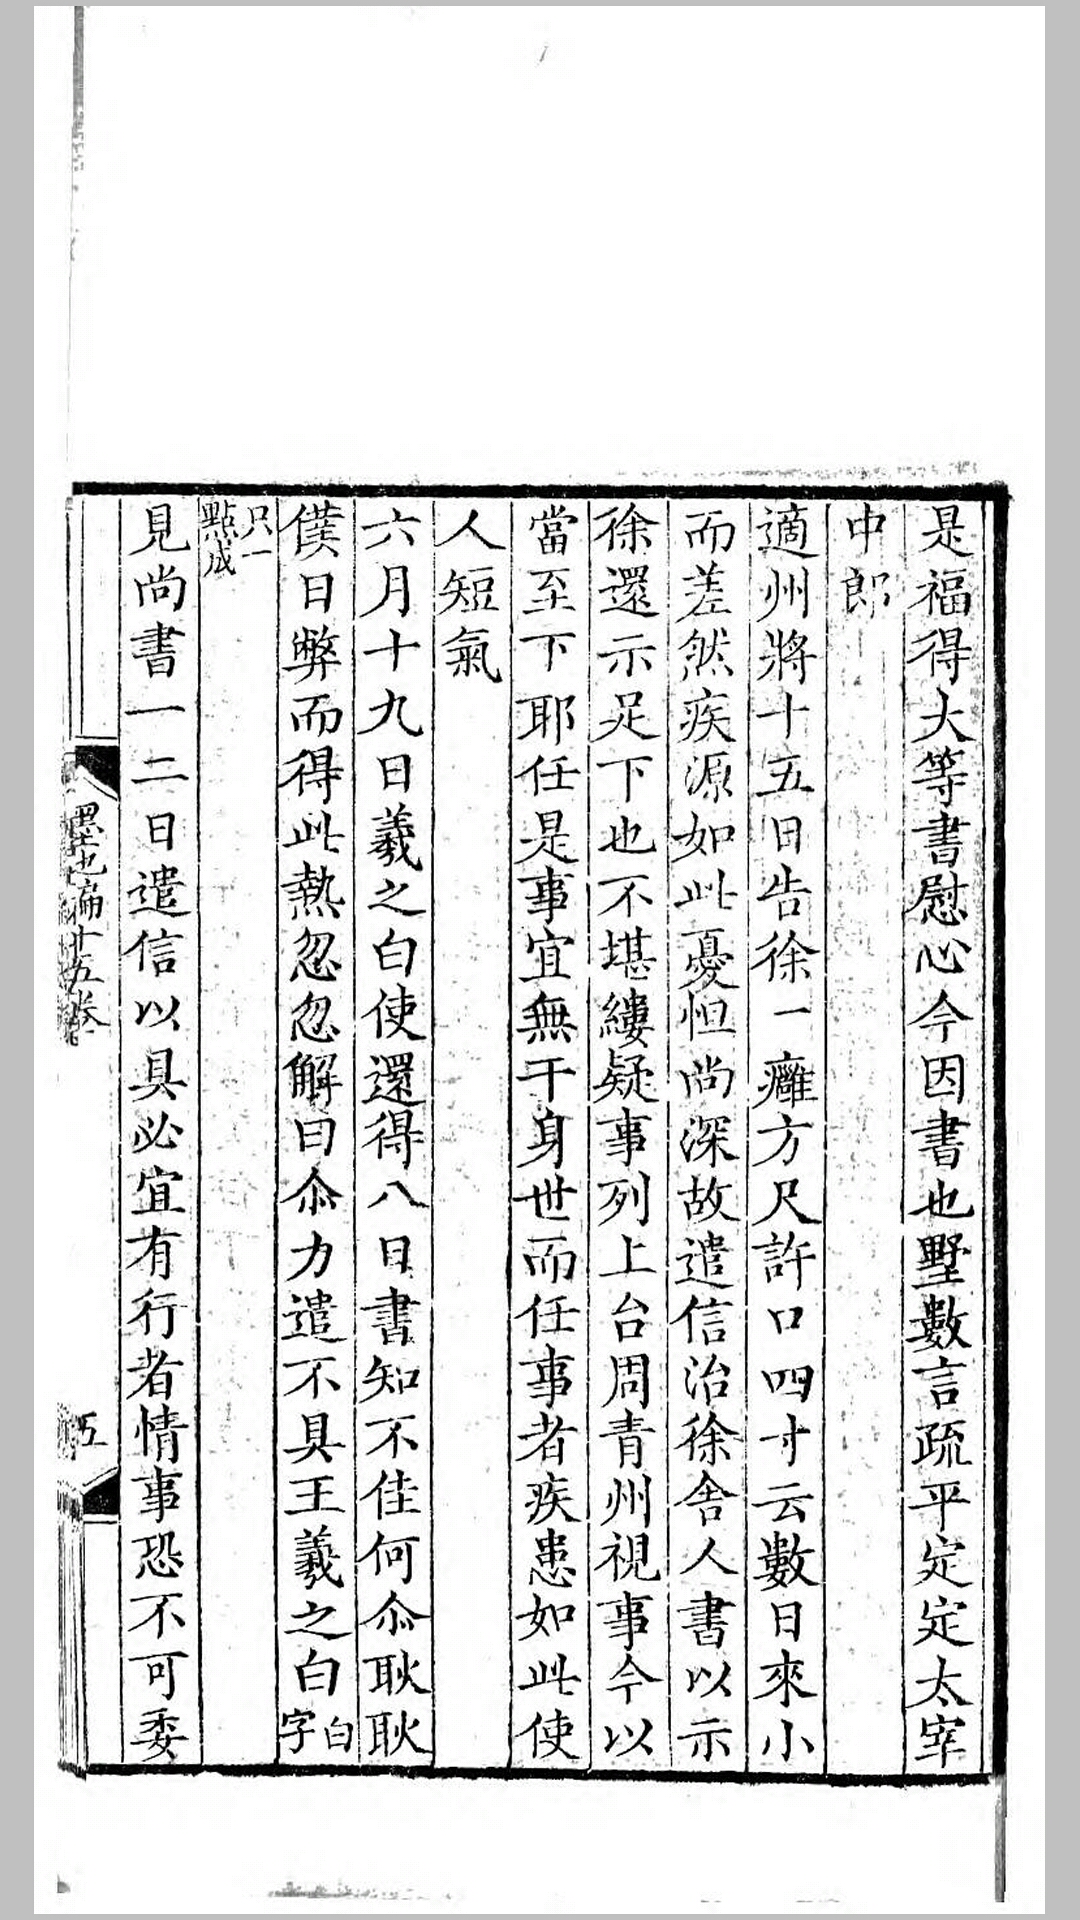 是福得大等書慰心今因書也墅數言疏平定定太宰
中郎
適州將十五日告徐一癰方尺許口四寸云數日來小
而差然疾源如此憂怛尚深故遣信治徐舍人書以示
徐還示足下也不堪縷疑事列上台周青州視事今以
當至下耶任是事宜無干身世而任事者疾患如此使
人短氣
六月十九日羲之白使還得八日書知不佳何尒耿耿
僕日弊而得此熱忽忽解日尒力遣不具王羲之白白字
只一點成
見尚書一二日遣信以具必宜有行者情事恐不可委
墨池編十五卷
五